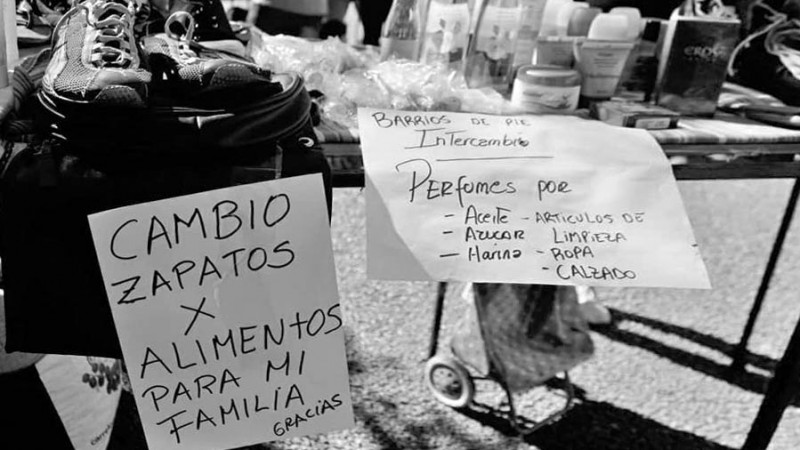 CAMBIO
ZAPATOS
X
ALIMENTOS
PARA MI
FAMILIA
GRACIAS
BARRIOS DE PIE
Intercambio
PERfumes por
- Aceite - ARTICULOS DE
- AZUCAR LIMPIEZA
- Harina - ROPA
- CALZADO